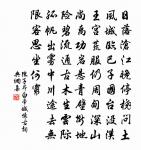 日落滄江晚停橈問土
風城臨巴子國台沒漢
王宮荒服仍周甸深山
尚禹功岩懸青壁斷地
險碧流通古木生雲際
歸帆出霧中川途去無
限客思坐何窮
陳子昂白帝城懷古